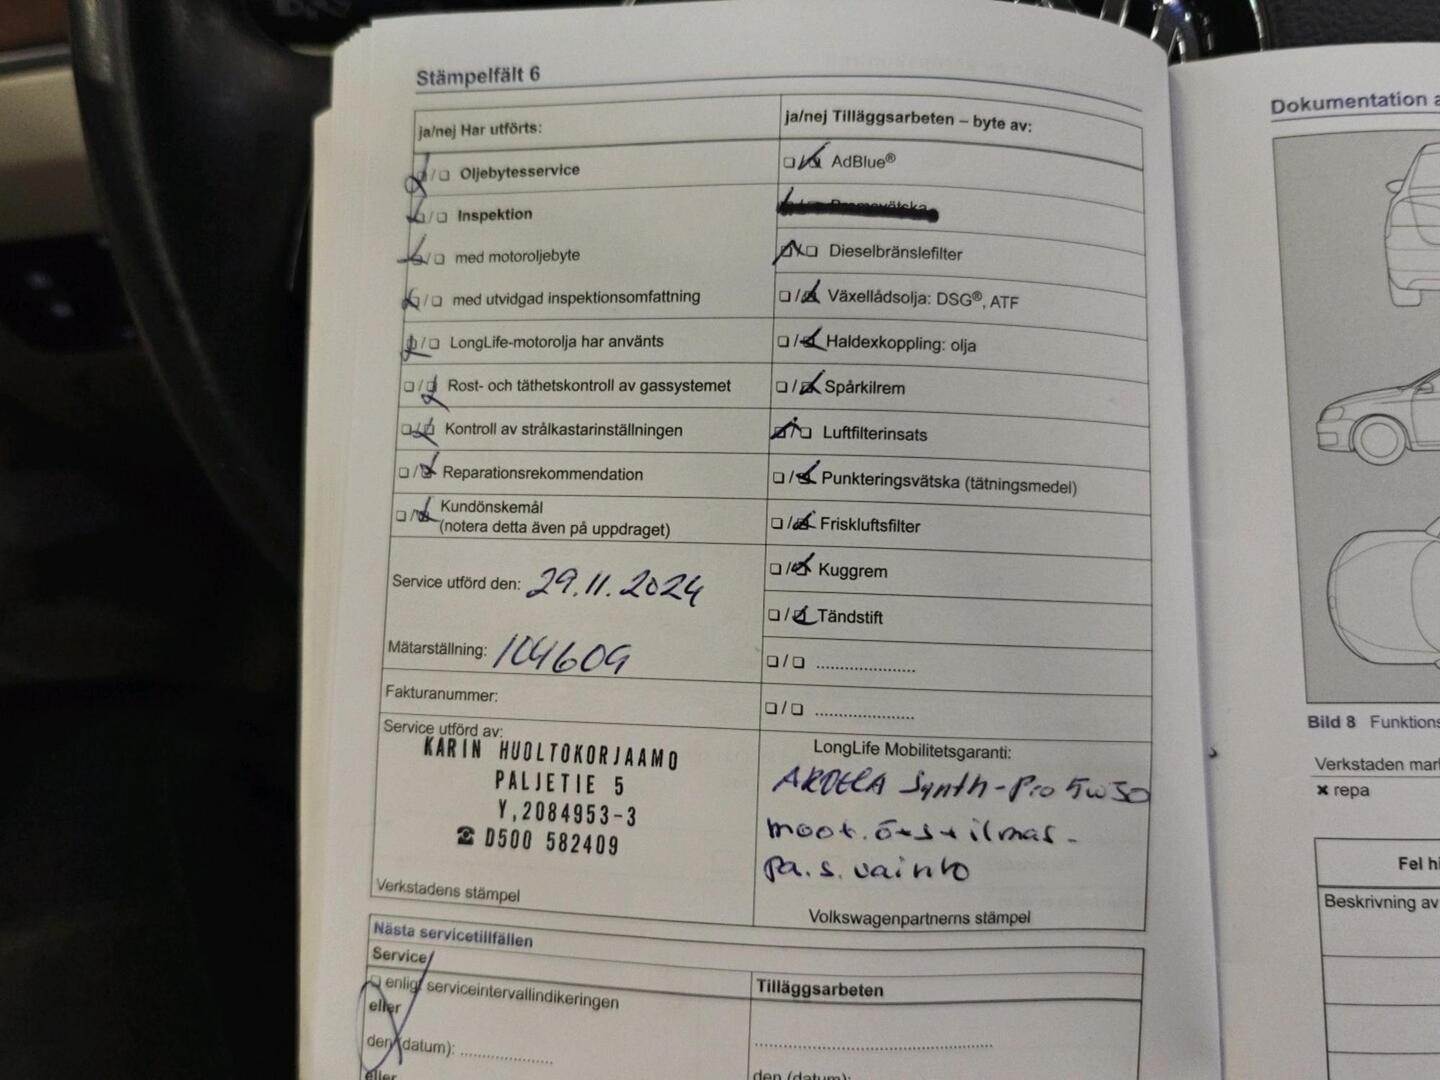 Stämpelfält 6
ja/nej Har utförts:
☒/☐ Oljebytesservice
☒/☐ Inspektion
☒/☐ med motoroljebyte
☒/☐ med utvidgad inspektionsomfattning
☒/☐ LongLife-motorolja har använts
☐/☒ Rost- och täthetskontroll av gassystemet
☐/☒ Kontroll av strålkastarinställningen
☐/☒ Reparationsrekommendation
☐/☒ Kundönskemål
(notera detta även på uppdraget)
Service utförd den: 29.11.2024
Mätarställning: 104609
Fakturanummer:
Service utförd av:
KARIN HUOLTOKORJAAMO
PALJETIE 5
Y,2084953-3
☎ 0500 582409
Verkstadens stämpel
ja/nej Tilläggsarbeten – byte av:
☐/☒ AdBlue®
Bromsvätska
☒/☐ Dieselbränslefilter
☐/☒ Växellådsolja: DSG®, ATF
☐/☒ Haldexkoppling: olja
☐/☒ Spårkilrem
☒/☐ Luftfilterinsats
☐/☒ Punkteringsvätska (tätningsmedel)
☐/☒ Friskluftsfilter
☐/☒ Kuggrem
☐/☒ Tändstift
☐/☐ ....................
☐/☐ ....................
LongLife Mobilitetsgaranti:
Synth-Pro 5W30
moot. ö+s+ilmas-
pa.s. vaihto
Volkswagenpartnerns stämpel
Nästa servicetillfällen
Service
☐ enligt serviceintervallindikeringen
eller
den (datum): ....................
eller
Tilläggsarbeten
..................................................
den (datum):
Dokumentation a
Bild 8 Funktions
Verkstaden mar
✖ repa
Fel hi
Beskrivning av